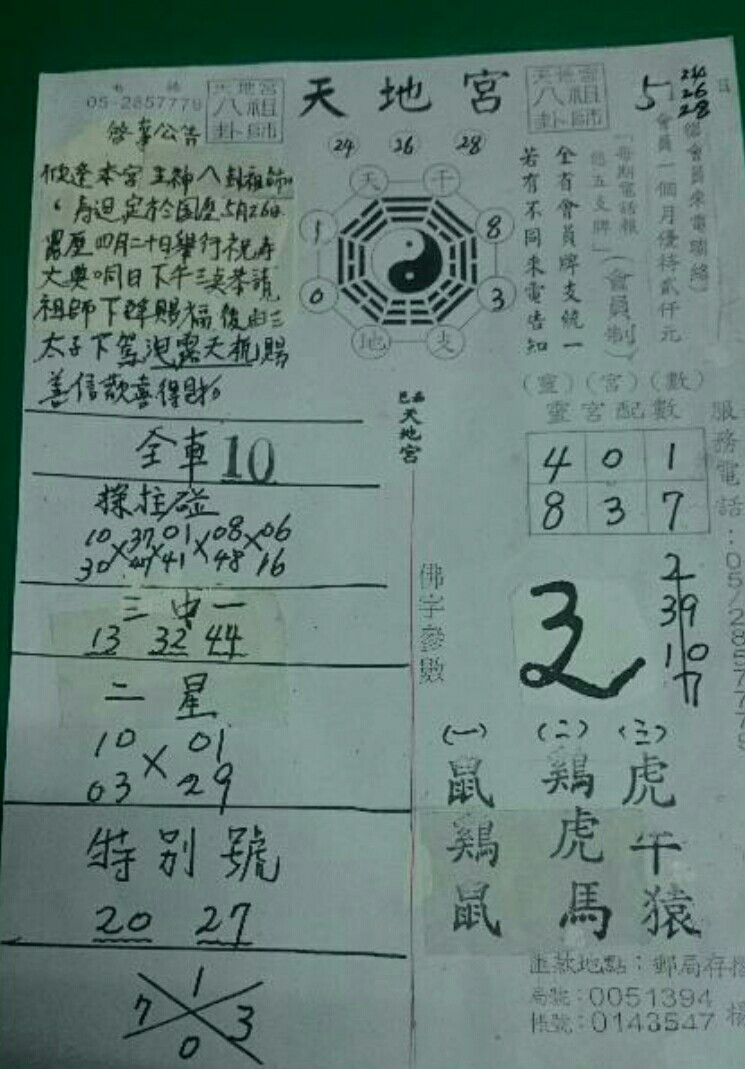 05-2857779
天地宮
八祖
卦師
天地宮
天地宮
八祖
卦師
5
24
26
28
日
啓事公告
欣逢本宮主神八卦祖師
壽迴定於國曆5月26日
農歷四月二十日舉行祝壽
大典同日下午三点恭請
祖師下降賜福後由三
太子下駕洩露天機賜
善信歡喜得財
24 26 28
天 干
1 8
0 3
地 支
若有不同來電告知
全省會員牌支統一
「每期電話報
五支牌」(會員制)
會員一個月優待貳仟元
會員來電聯絡)
全車10
採柱碰
10 37 01 08 06
× × × ×
30 41 48 16
三中一
13 32 44
二星
10 × 01
03 29
特別號
20 27
1
7 3
0
天地宮
(靈)(宮)(數)
靈宮配數
4 0 1
8 3 7
服務電話:05/2857779
佛字參數
2
39
10
7
(一) (二) (三)
鼠 鷄 虎
鷄 虎 午
鼠 馬 猿
匯款地點:郵局存
局號:0051394
帳號:0143547